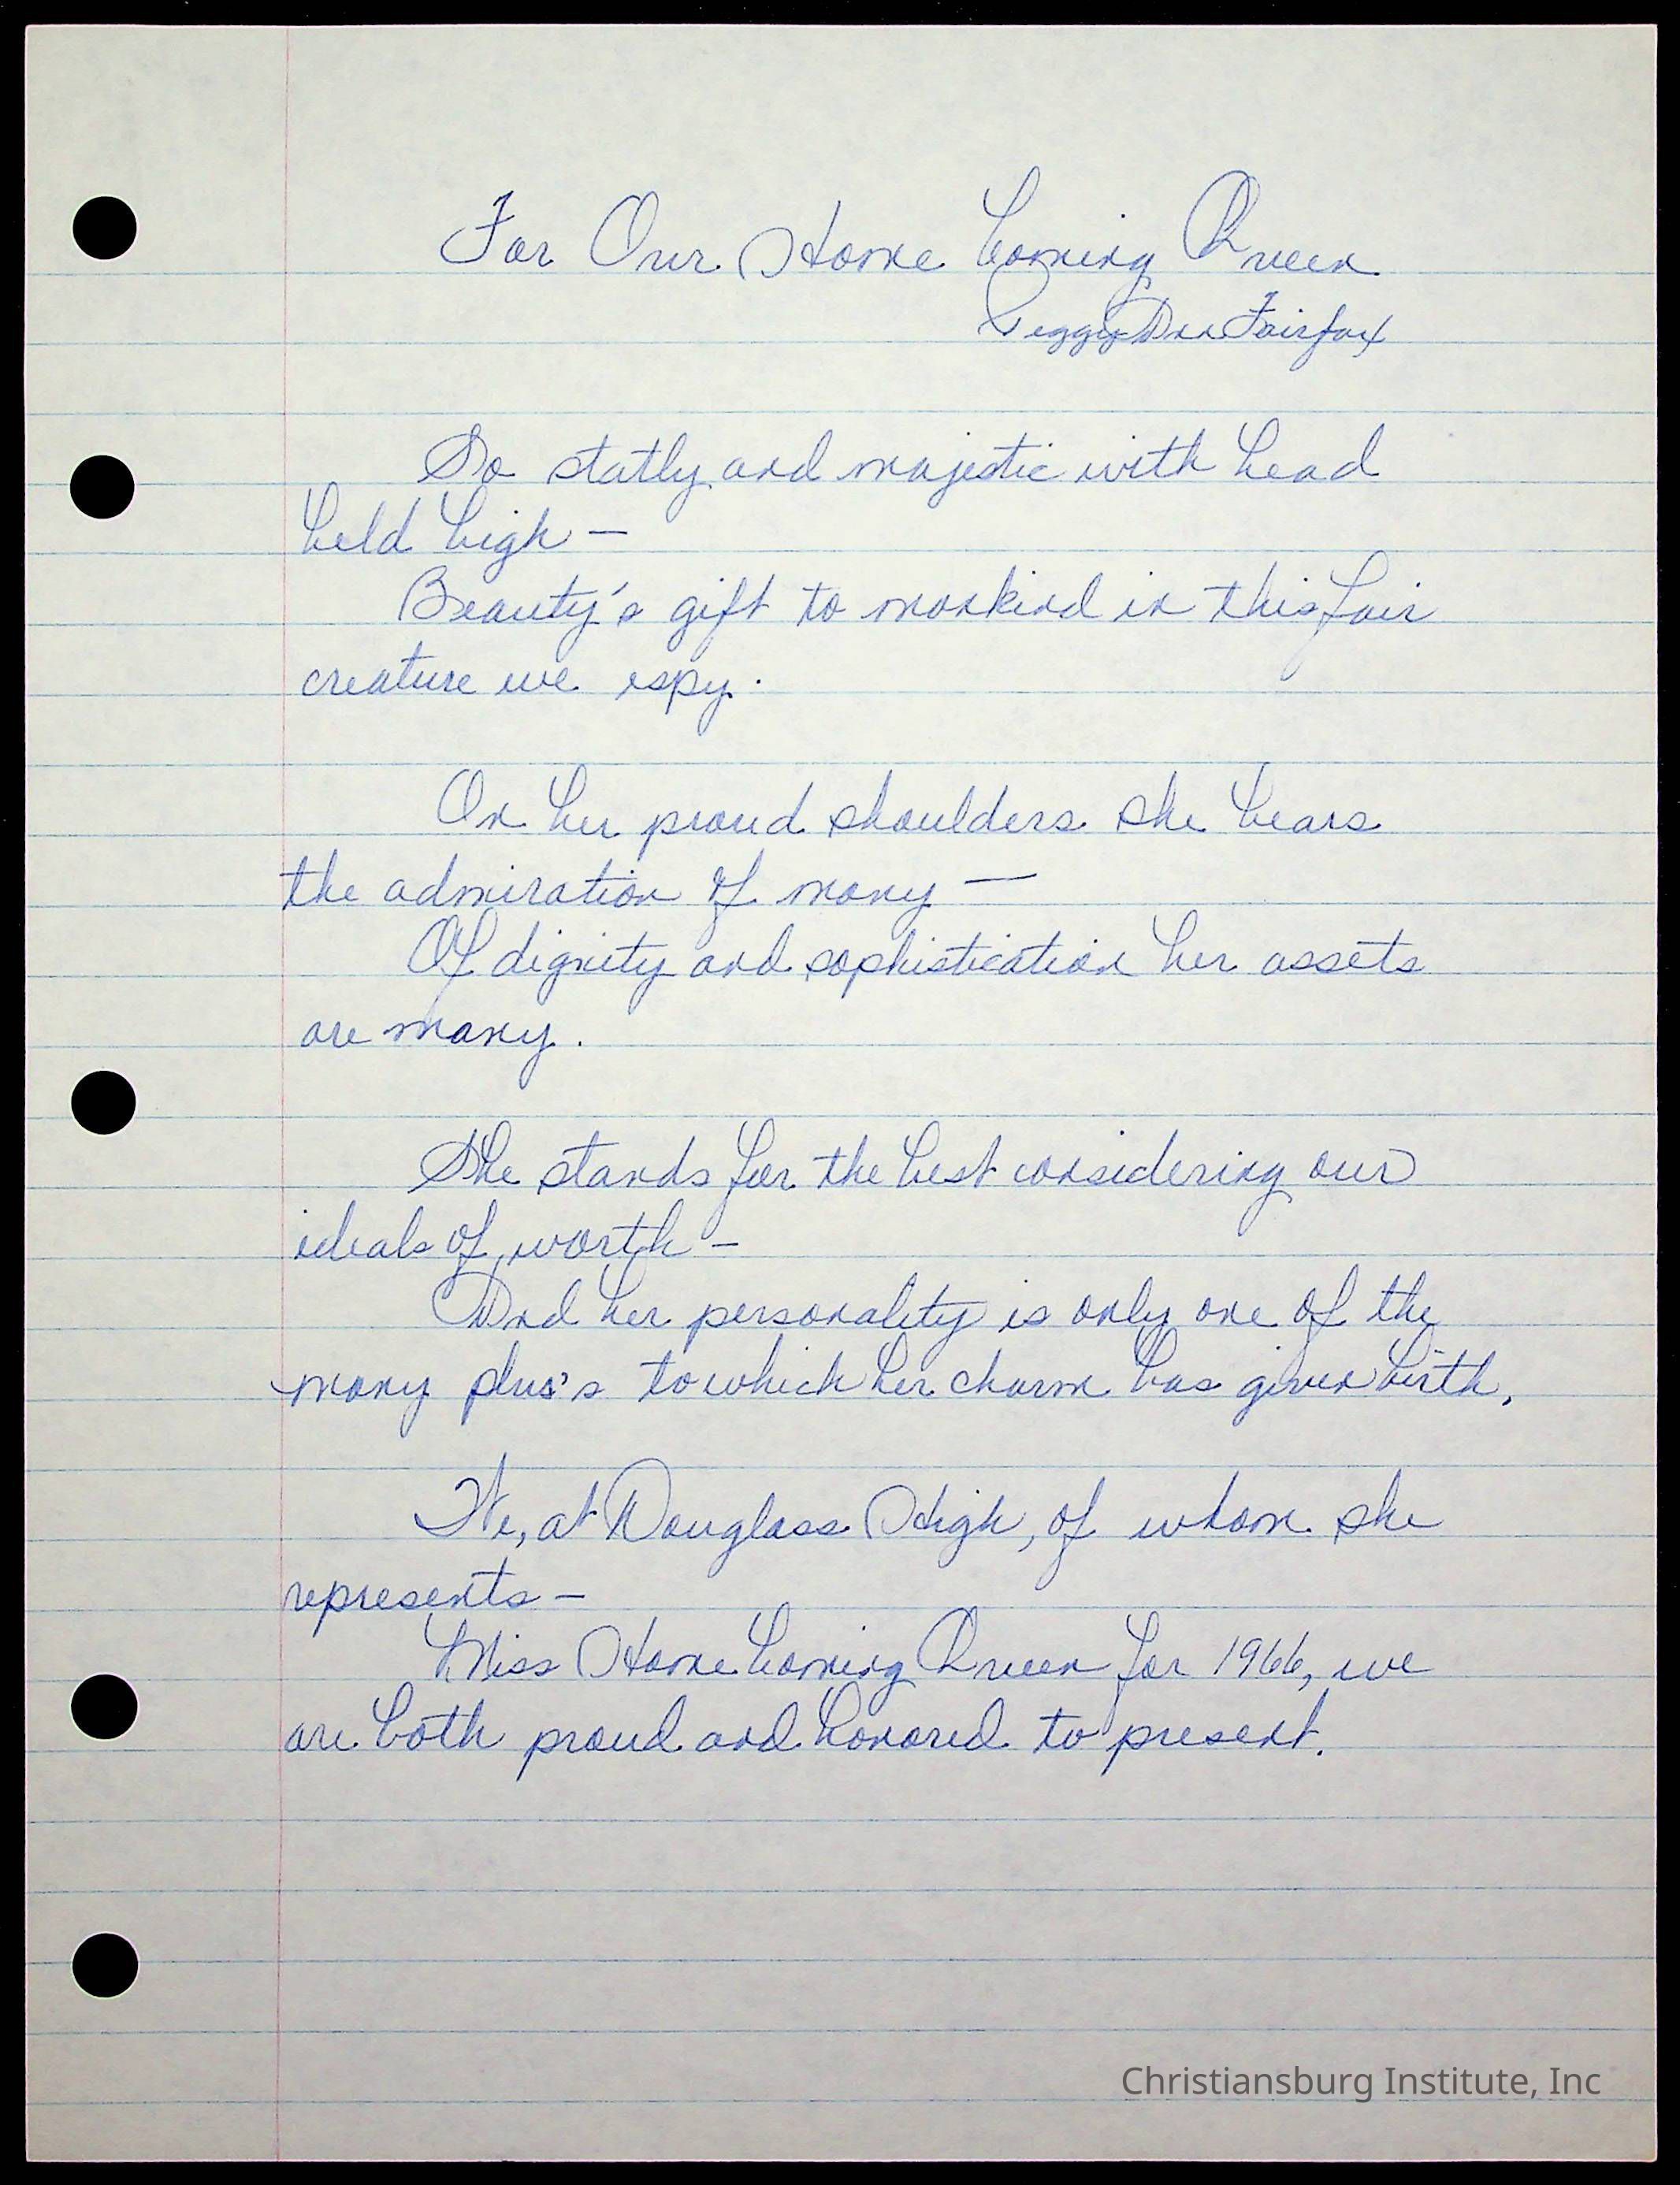 For Our Home Coming Queen
Peggy Ann Fairfax
So statly and majestic with head
held high —
Beauty's gift to mankind in this fair
creature we espy.
On her proud shoulders she bears
the admiration of many —
Of dignity and sophistication her assets
are many.
She stands for the best considering our
ideals of worth -
And her personality is only one of the
many plus's to which her charm has given birth.
We, at Douglass High, of whom she
represents -
Miss Home Coming Queen for 1966, we
are both proud and honored to present.
Christiansburg Institute, Inc